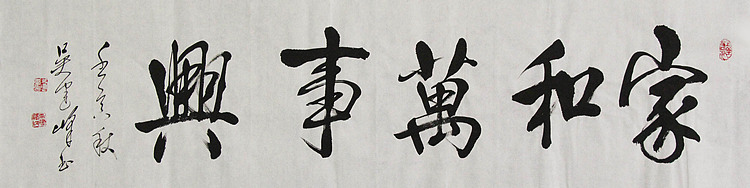 家和萬事興
壬辰秋
吳建峰書